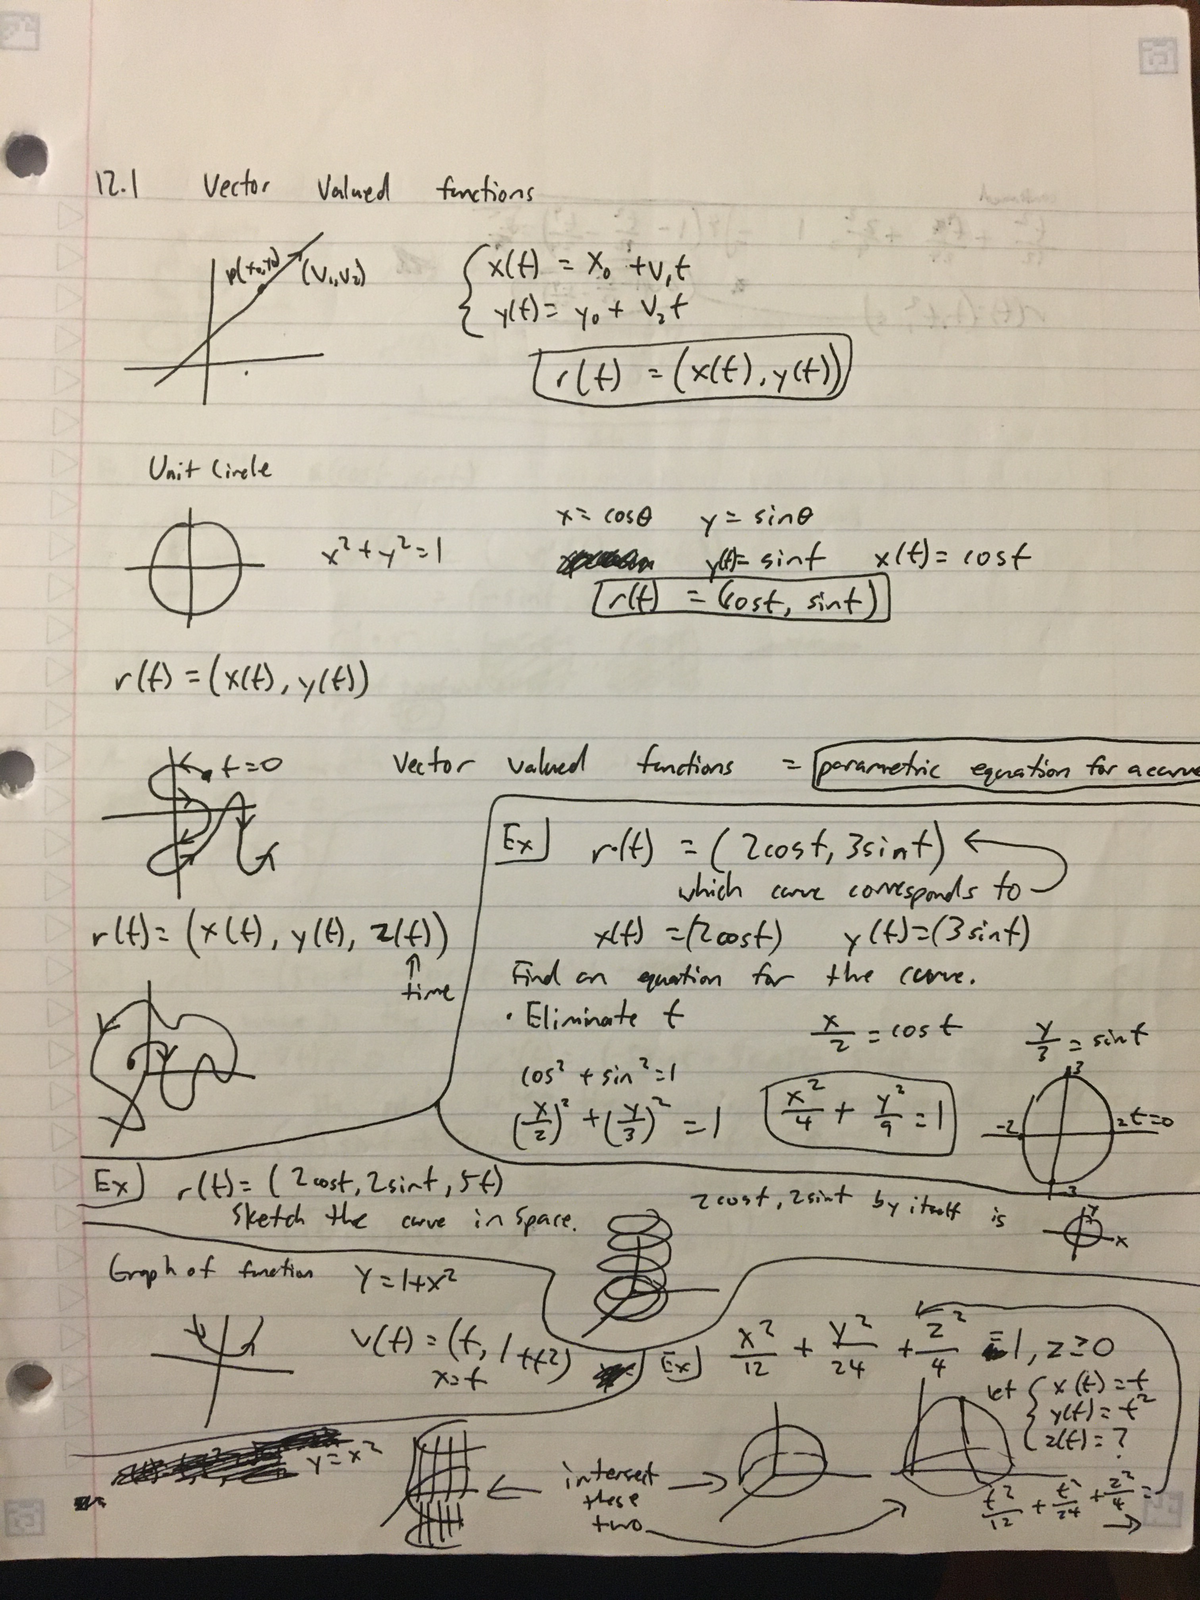 12.1 Vector Valued functions
P(x₀,y₀) (V₁,V₂)
x(t) = x₀ + v₁t
y(t) = y₀ + V₂t
r(t) = (x(t), y(t))
Unit Circle
x = cosθ y = sinθ
x² + y² = 1
y(t) = sint x(t) = cost
r(t) = (cost, sint)
r(t) = (x(t), y(t))
t=0
Vector valued functions = parametric equation for a curve
Ex) r(t) = (2cost, 3sint)
which curve corresponds to
r(t) = (x(t), y(t), z(t))
time
x(t) = (2cost) y(t) = (3sint)
Find an equation for the curve.
• Eliminate t
x/2 = cost y/3 = sint
cos² + sin² = 1
(x/2)² + (y/3)² = 1
x²/4 + y²/9 = 1
3
-2 2 t=0
-3
Ex) r(t) = (2cost, 2sint, 5t)
Sketch the curve in space.
2cost, 2sint by itself is
y
x
Graph of function y = 1+x²
v(t) = (t, 1+t²)
x=t
Ex) x²/12 + y²/24 + z²/4 = 1, z ≥ 0
let x(t) = t
y(t) = t²
z(t) = ?
y = x²
intersect
these
two
t²/12 + t²/24 + z²/4 =